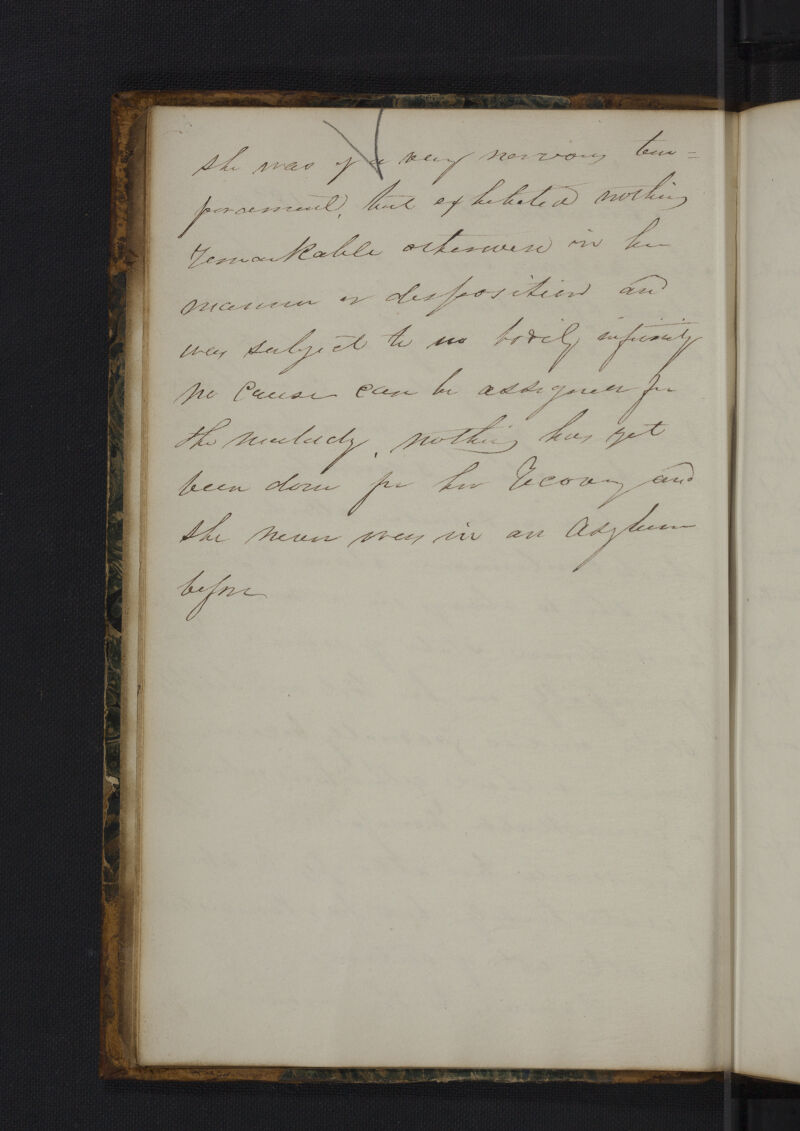 she was of a very nervous tem=
perament, but exhibited nothing
remarkable otherwise in her
manner or disposition and
was subject to no bodily infirmity
no cause can be assigned for
the malady, nothing has yet
been done for her recovery and
she never was in an Asylum
before